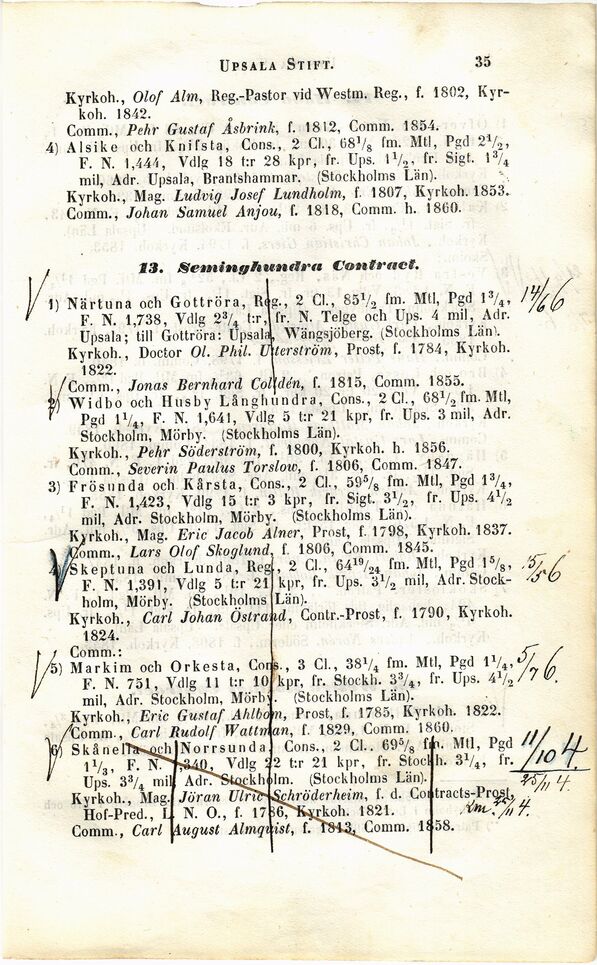 UPSALA STIFT. 35
Kyrkoh., Olof Alm, Reg.-Pastor vid Westm. Reg., f. 1802, Kyr-
koh. 1842.
Comm., Pehr Gustaf Åsbrink, f. 1812, Comm. 1854.
4) Alsike och Knifsta, Cons., 2 Cl., 68 1/8 fm. Mtl, Pgs 2 1/2,
F. N. 1,444, Vdlg 18 t:r 28 kpr, fr. Ups. 1 1/2, fr. Sigt. 1 3/4
mil, Adr. Upsala, Brantshammar. (Stockholms Län).
Kyrkoh., Mag. Ludvig Josef Lundholm, f. 1807, Kyrkoh. 1853.
Comm., Johan Samuel Anjou, f. 1818, Comm. h. 1860.
13. Seminghundra Contract.
1) Närtuna och Gottröra, Reg., 2 Cl., 85 1/2 fm. Mtl, Pgd 1 3/4, 14/6 6
F. N. 1,738, Vdlg 2 3/4 t:r, fr. N. Telge och Ups. 4 mil, Adr.
Upsala; till Gottröra: Upsala, Wängsjöberg. (Stockholms Län).
Kyrkoh., Doctor Ol. Phil. Utterström, Prost, f. 1784, Kyrkoh.
1822.
Comm., Jonas Bernhard Colldén, f. 1815, Comm. 1855.
2) Widbo och Husby Långhundra, Cons., 2 Cl., 68 1/2 fm. Mtl,
Pgd 1 1/4, F. N. 1,641, Vdlg 5 t:r 21 kpr, fr. Ups. 3 mil, Adr.
Stockholm, Mörby. (Stockholms Län).
Kyrkoh., Pehr Söderström, f. 1800, Kyrkoh. h. 1856.
Comm., Severin Paulus Torslow, f. 1806, Comm. 1847.
3) Frösunda och Kårsta, Cons., 2 Cl., 59 5/8 fm. Mtl, Pgd 1 3/4,
F. N. 1,423, Vdlg 15 t:r 3 kpr, fr. Sigt. 3 1/2, fr. Ups. 4 1/2
mil, Adr. Stockholm, Mörby. (Stockholms Län).
Kyrkoh., Mag. Eric Jacob Alner, Prost, f. 1798, Kyrkoh. 1837.
Comm., Lars Olof Skoglund, f. 1806, Comm. 1845.
4) Skeptuna och Lunda, Reg., 2 Cl., 64 19/24 fm. Mtl, Pgd 1 5/8,
F. N. 1,391, Vdlg 5 t:r 21 kpr, fr. Ups. 3 1/2 mil, Adr. Stock-
holm, Mörby. (Stockholms Län).
Kyrkoh., Carl Johan Östrand, Contr.-Prost, f. 1790, Kyrkoh.
1824.
Comm.:
5) Markim och Orkesta, Cons., 3 Cl., 38 1/4 fm. Mtl, Pgd 1 1/4, 5/7 6.
F. N. 751, Vdlg 11 t:r 10 kpr, fr. Stockh. 3 3/4, fr. Ups. 4 1/2
mil, Adr. Stockholm, Mörby. (Stockholms Län).
Kyrkoh., Eric Gustaf Ahlbom, Prost, f. 1785, Kyrkoh. 1822.
Comm., Carl Rudolf Wattman, f. 1829, Comm. 1860.
6) Skånella och Norrsunda, Cons., 2 Cl., 69 5/8 fm. Mtl, Pgd 11/10 4.
1 1/3, F. N. 1,340, Vdlg 22 t:r 21 kpr, fr. Stockh. 3 1/4, fr.
Ups. 3 3/4 mil, Adr. Stockholm. (Stockholms Län). 25/11 4.
Kyrkoh., Mag. Jöran Ulric Schröderheim, f. d. Contracts-Prost,
Hof-Pred., L. N. O., f. 1786, Kyrkoh. 1821.
Comm., Carl August Almquist, f. 1813, Comm. 1858.